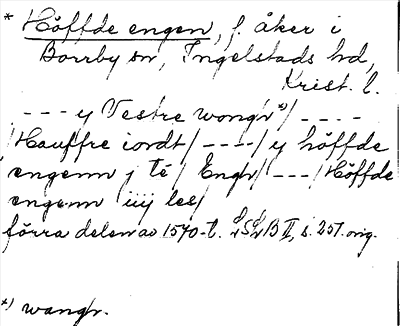 * Höffde engen, f. åker i
Borrby sn, Ingelstads hd,
Krist. l.
- - - y Vestre wongr *)/ - - - -
/Hauffre iordt/ - - - -/ y höffde
engenn j té/ Engr/ - - -/ Höffde
engenn iiij les/
förra delen av 1570-t. LSLB II, s. 257. orig.
*) wangr.